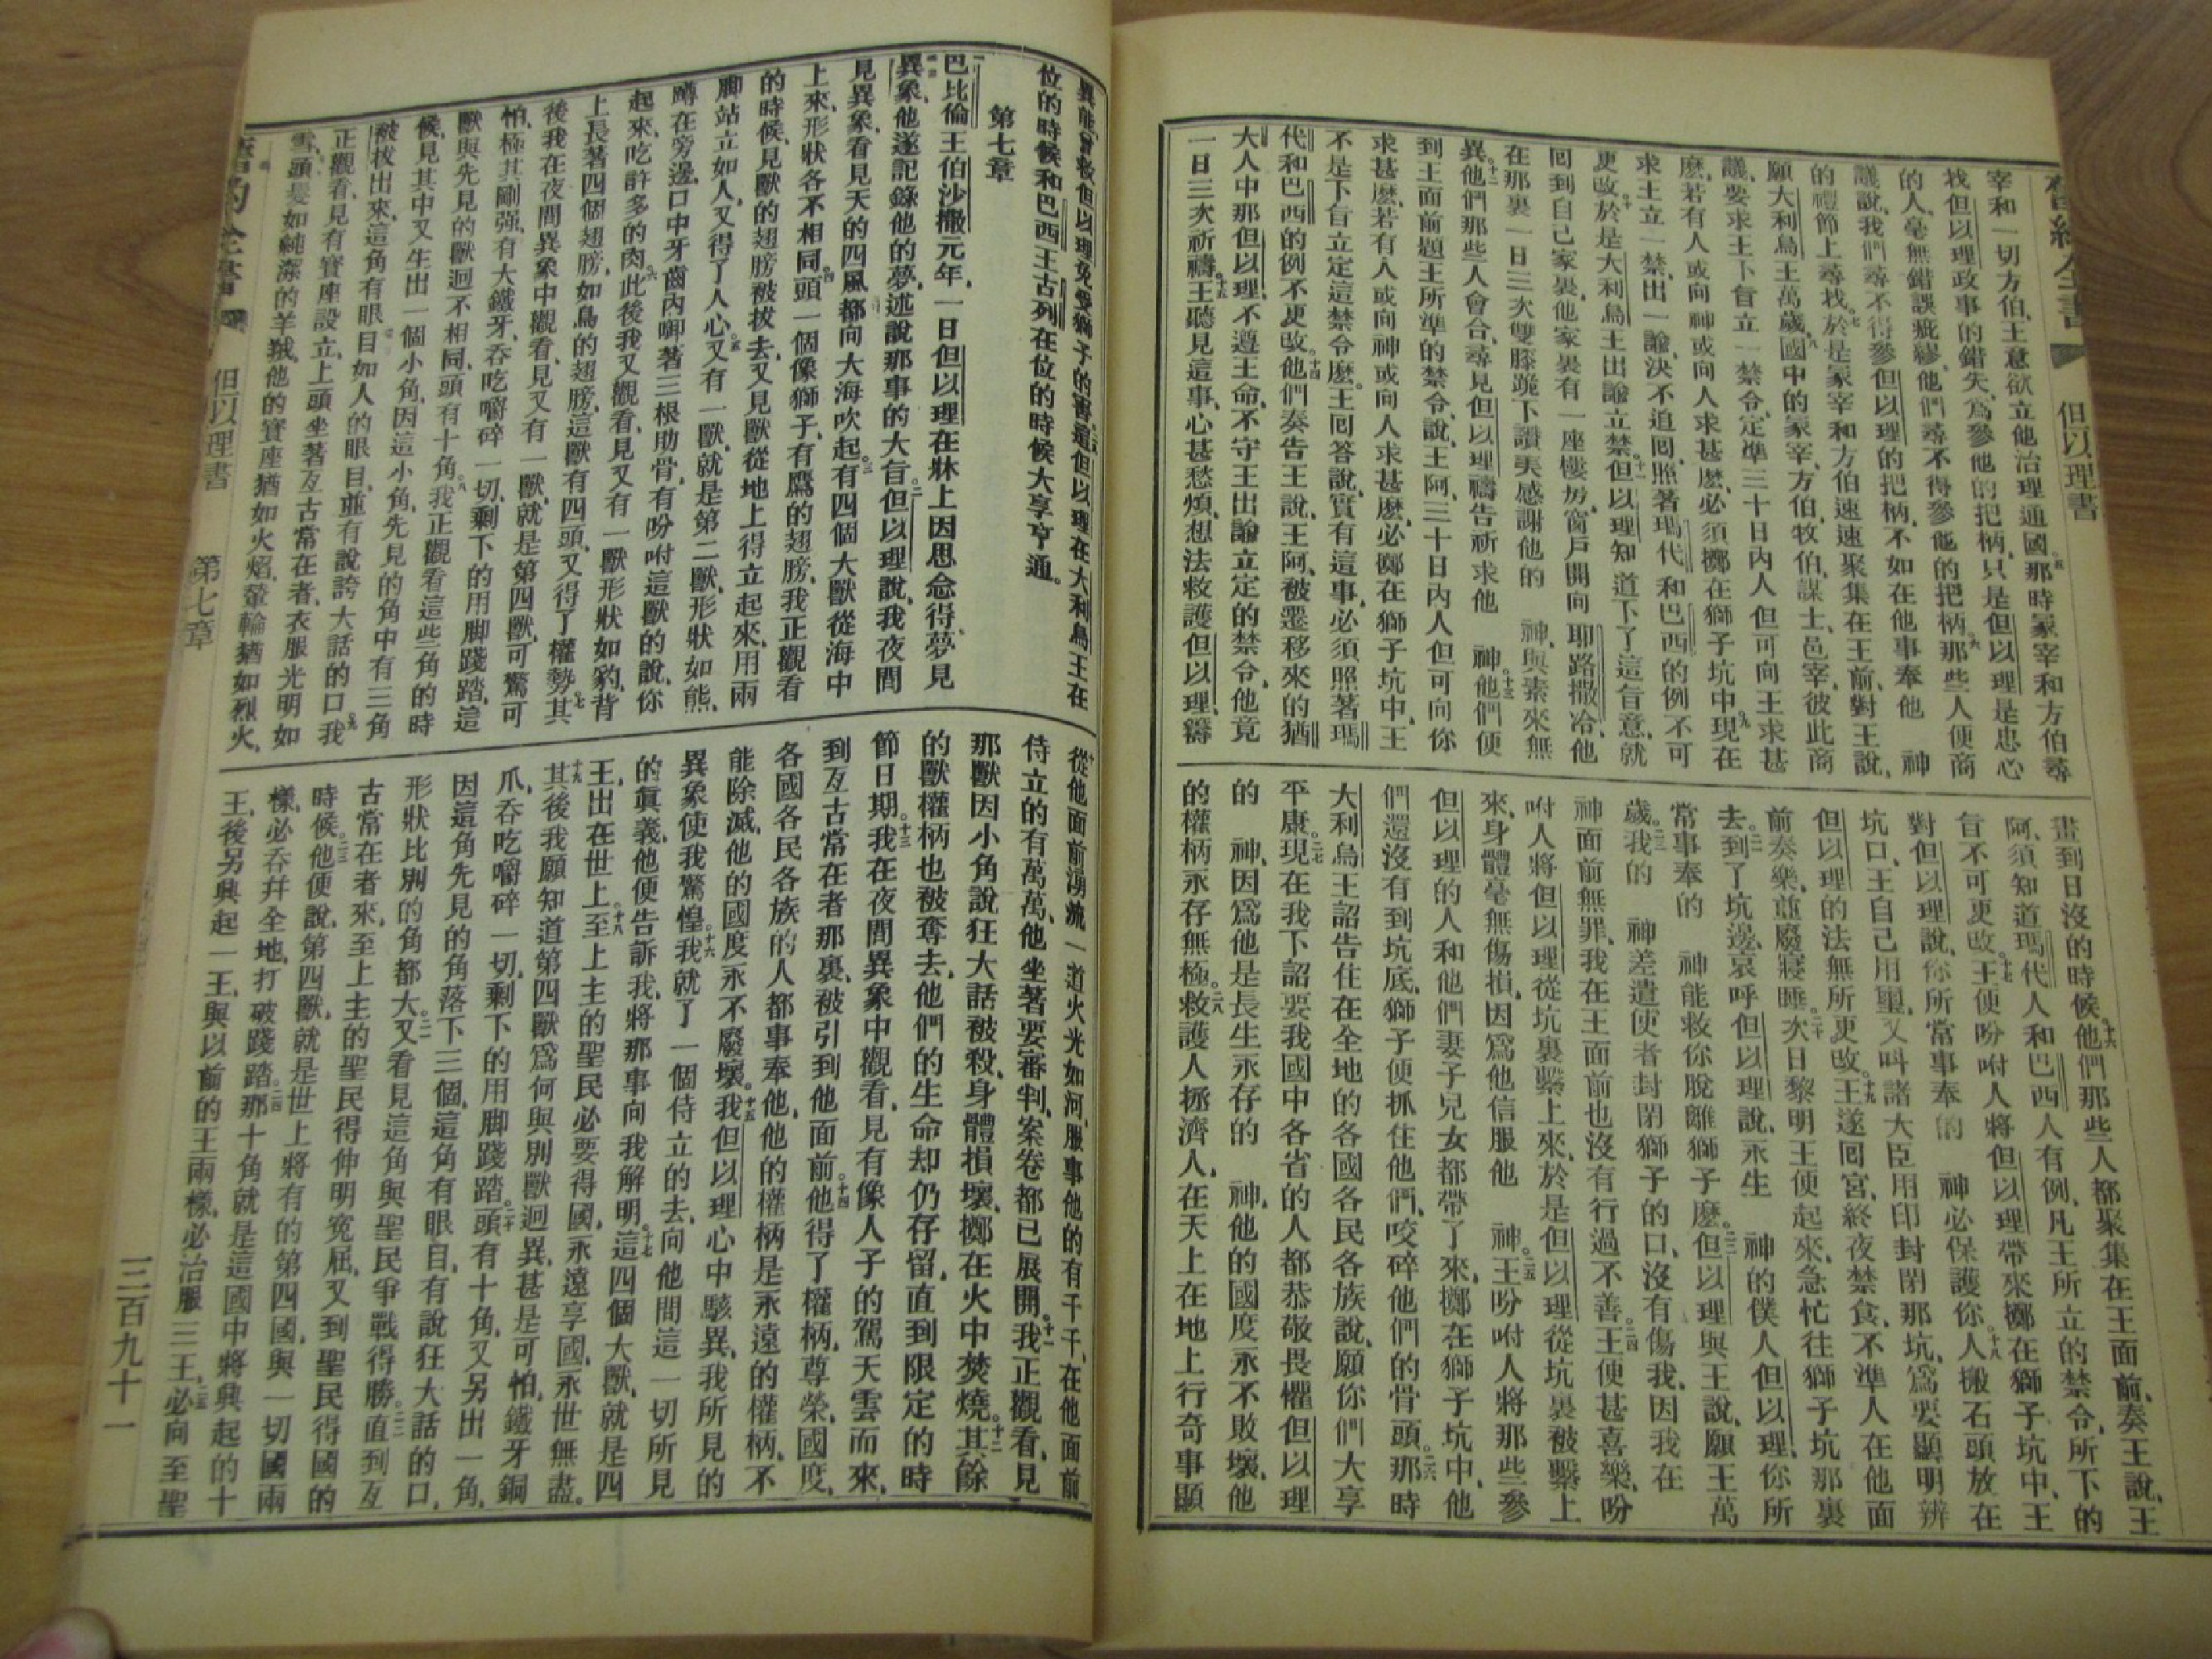 但以理書
宰和一切方伯、王意欲立他治理通國。五那時冢宰和方伯尋
找但以理政事的錯失、爲參他的把柄、只是但以理是忠心
的人、毫無錯誤疵繆、他們尋不得參他的把柄。六那些人便商
議說、我們尋不得參但以理的把柄、不如在他事奉他 神
的禮節上尋找。七於是冢宰和方伯速速聚集在王前、對王說、
願大利烏王萬歲。八國中的冢宰、方伯、牧伯、謀士、邑宰、彼此商
議、要求王下旨立一禁令、定準三十日內人但可向王求甚
麽、若有人或向神或向人求甚麽、必須擲在獅子坑中。九現在
求王立一禁、出一諭、決不追回、照著瑪代和巴西的例不可
更改。十於是大利烏王出諭立禁。十一但以理知道下了這旨意、就
回到自己家裏、他家裏有一座樓房、窗戶開向耶路撒冷、他
在那裏一日三次雙膝跪下讚美感謝他的 神、與素來無
異。十二他們那些人會合、尋見但以理禱告祈求他 神。十三他們便
到王面前題王所準的禁令、說、王阿、三十日內人但可向你
求甚麽、若有人或向神或向人求甚麽、必擲在獅子坑中、王
不是下旨立定這禁令麽、王回答說、實有這事、必須照著瑪
代和巴西的例不更改。十四他們奏告王說、王阿、被遷移來的猶
大人中那但以理、不遵王命、不守王出諭立定的禁令、他竟
一日三次祈禱。十五王聽見這事、心甚愁煩、想法救護但以理、籌
畫到日沒的時候。十六他們那些人都聚集在王面前、奏王說、王
阿、須知道瑪代人和巴西人有例、凡王所立的禁令、所下的
旨不可更改。十七王便吩咐人將但以理帶來擲在獅子坑中、王
對但以理說、你所常事奉的 神必保護你。十八人搬石頭放在
坑口、王自己用璽、又叫諸大臣用印封閉那坑、爲要顯明辨
但以理的法無所更改。十九王遂回宮、終夜禁食、不準人在他面
前奏樂、並廢寢睡。二十次日黎明王便起來、急忙往獅子坑那裏
去。二一到了坑邊、哀呼但以理說、永生 神的僕人但以理、你所
常事奉的 神能救你脫離獅子麽。二二但以理與王說、願王萬
歲。二三我的 神差遣使者封閉獅子的口、沒有傷我、因我在
神面前無罪、我在王面前也沒有行過不善。二四王便甚喜樂、吩
咐人將但以理從坑裏繫上來、於是但以理從坑裏被繫上
來、身體毫無傷損、因爲他信服他 神。二五王吩咐人將那些參
但以理的人和他們妻子兒女都帶了來、擲在獅子坑中、他
們還沒有到坑底、獅子便抓住他們、咬碎他們的骨頭。二六那時
大利烏王詔告住在全地的各國各民各族說、願你們大享
平康。二七現在我下詔、要我國中各省的人都恭敬畏懼但以理
的 神、因爲他是長生永存的 神、他的國度永不敗壞、他
的權柄永存無極。二八救護人拯濟人、在天上在地上行奇事顯
異能、曾救但以理免受獅子的害。二九這但以理在大利烏王在
位的時候和巴西王古列在位的時候大享亨通。
第七章
巴比倫王伯沙撒元年、一日但以理在牀上因思念得夢見
異象、他遂記錄他的夢、述說那事的大旨。二但以理說、我夜間
見異象、看見天的四風都向大海吹起。三有四個大獸從海中
上來、形狀各不相同。四頭一個像獅子、有鷹的翅膀、我正觀看
的時候、見獸的翅膀被拔去、又見獸從地上得立起來、用兩
脚站立如人、又得了人心。五又有一獸、就是第二獸、形狀如熊、
蹲在旁邊、口中牙齒內啣著三根肋骨、有吩咐這獸的說、你
起來、吃許多的肉。六此後我又觀看、見又有一獸形狀如豹、背
上長著四個翅膀、如鳥的翅膀、這獸有四頭、又得了權勢。七其
後我在夜間異象中觀看、見又有一獸、就是第四獸、可驚可
怕、極其剛强、有大鐵牙、吞吃嚼碎一切、剩下的用脚踐踏、這
獸與先見的獸迥不相同、頭有十角。八我正觀看這些角的時
候、見其中又生出一個小角、因這小角、先見的角中有三角
被拔出來、這角有眼目如人的眼目、並有說誇大話的口。九我
正觀看、見有寶座設立、上頭坐著亙古常在者、衣服光明如
雪、頭髮如純潔的羊羢、他的寶座猶如火焰、聲輪猶如烈火、
十從他面前湧流一道火光如河、服事他的有千千、在他面前
侍立的有萬萬、他坐著要審判、案卷都已展開。十一我正觀看、見
那獸因小角說狂大話被殺、身體損壞、擲在火中焚燒。十二其餘
的獸權柄也被奪去、他們的生命却仍存留、直到限定的時
節日期。十三我在夜間異象中觀看、見有像人子的駕天雲而來、
到亙古常在者那裏、被引到他面前。十四他得了權柄、尊榮、國度、
各國各民各族的人都事奉他、他的權柄是永遠的權柄、不
能除滅、他的國度永不廢壞。十五我但以理心中駭異、我所見的
異象使我驚惶。十六我就了一個侍立的去、向他問這一切所見
的眞義、他便告訴我、將那事向我解明。十七這四個大獸、就是四
王、出在世上。十八至上主的聖民必要得國、永遠享國、永世無盡。
十九其後我願知道第四獸爲何與別獸迥異、甚是可怕、鐵牙銅
爪、吞吃嚼碎一切、剩下的用脚踐踏。二十頭有十角、又另出一角、
因這角先見的角落下三個、這角有眼目、有說狂大話的口、
形狀比別的角都大。二一又看見這角與聖民爭戰得勝。二二直到亙
古常在者來、至上主的聖民得伸明冤屈、又到聖民得國的
時候。二三他便說、第四獸、就是世上將有的第四國、與一切國兩
樣、必吞幷全地、打破踐踏。二四那十角就是這國中將興起的十
王、後另興起一王、與以前的王兩樣、必治服三王。二五必向至聖
但以理書
第七章
三百九十一